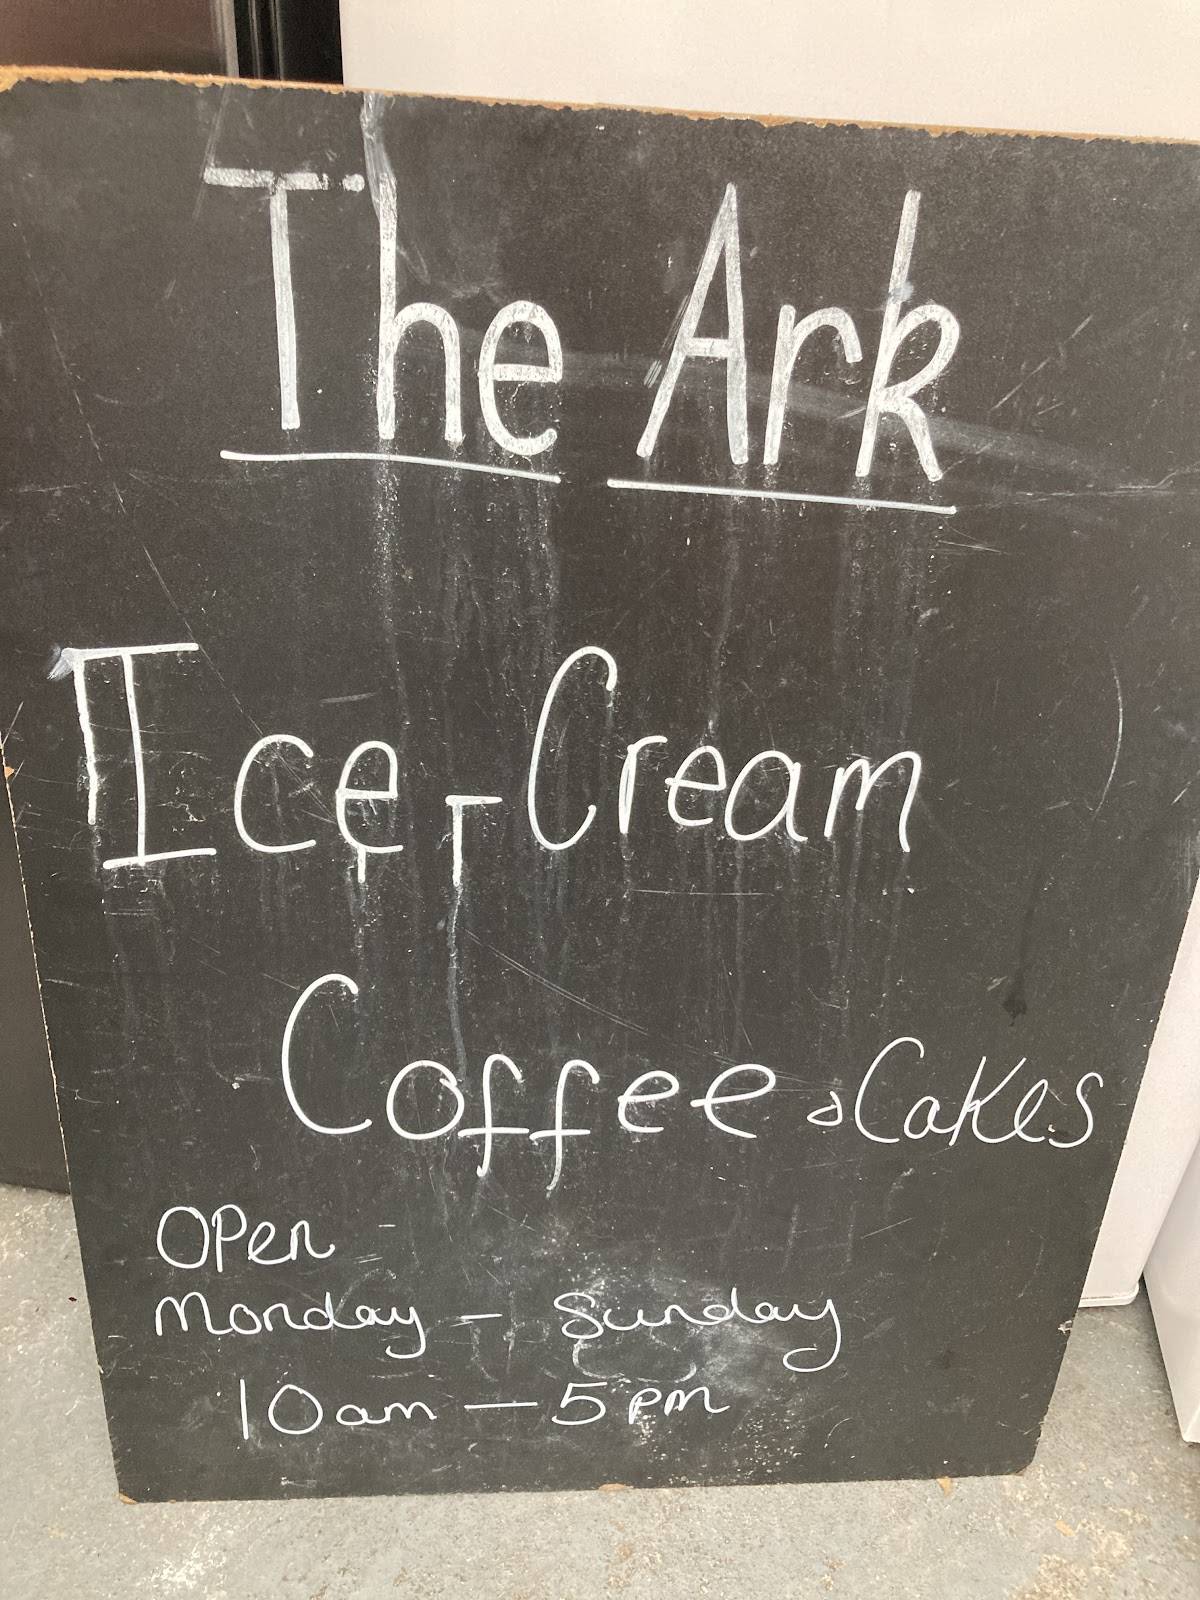 The Ark
Ice-Cream
Coffee & Cakes
Open
Monday - Sunday
10am - 5pm